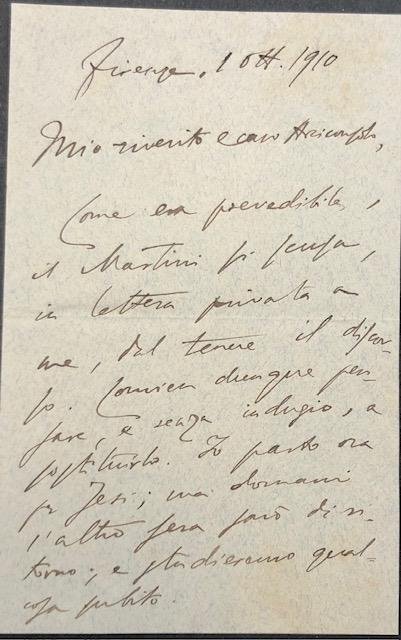 Firenze, 1 ott. 1910
Mio riverito e caro Arciconsolo,
Come era prevedibile,
il Martini si scusa,
in lettera privata a
me, dal tenere il discor-
so. Convien dunque pen-
sare, e senza indugio, a
sostituirlo. Io parto ora
per Jesi; ma domani
l'altro sera sarò di ri-
torno; e studieremo qual-
cosa subito.